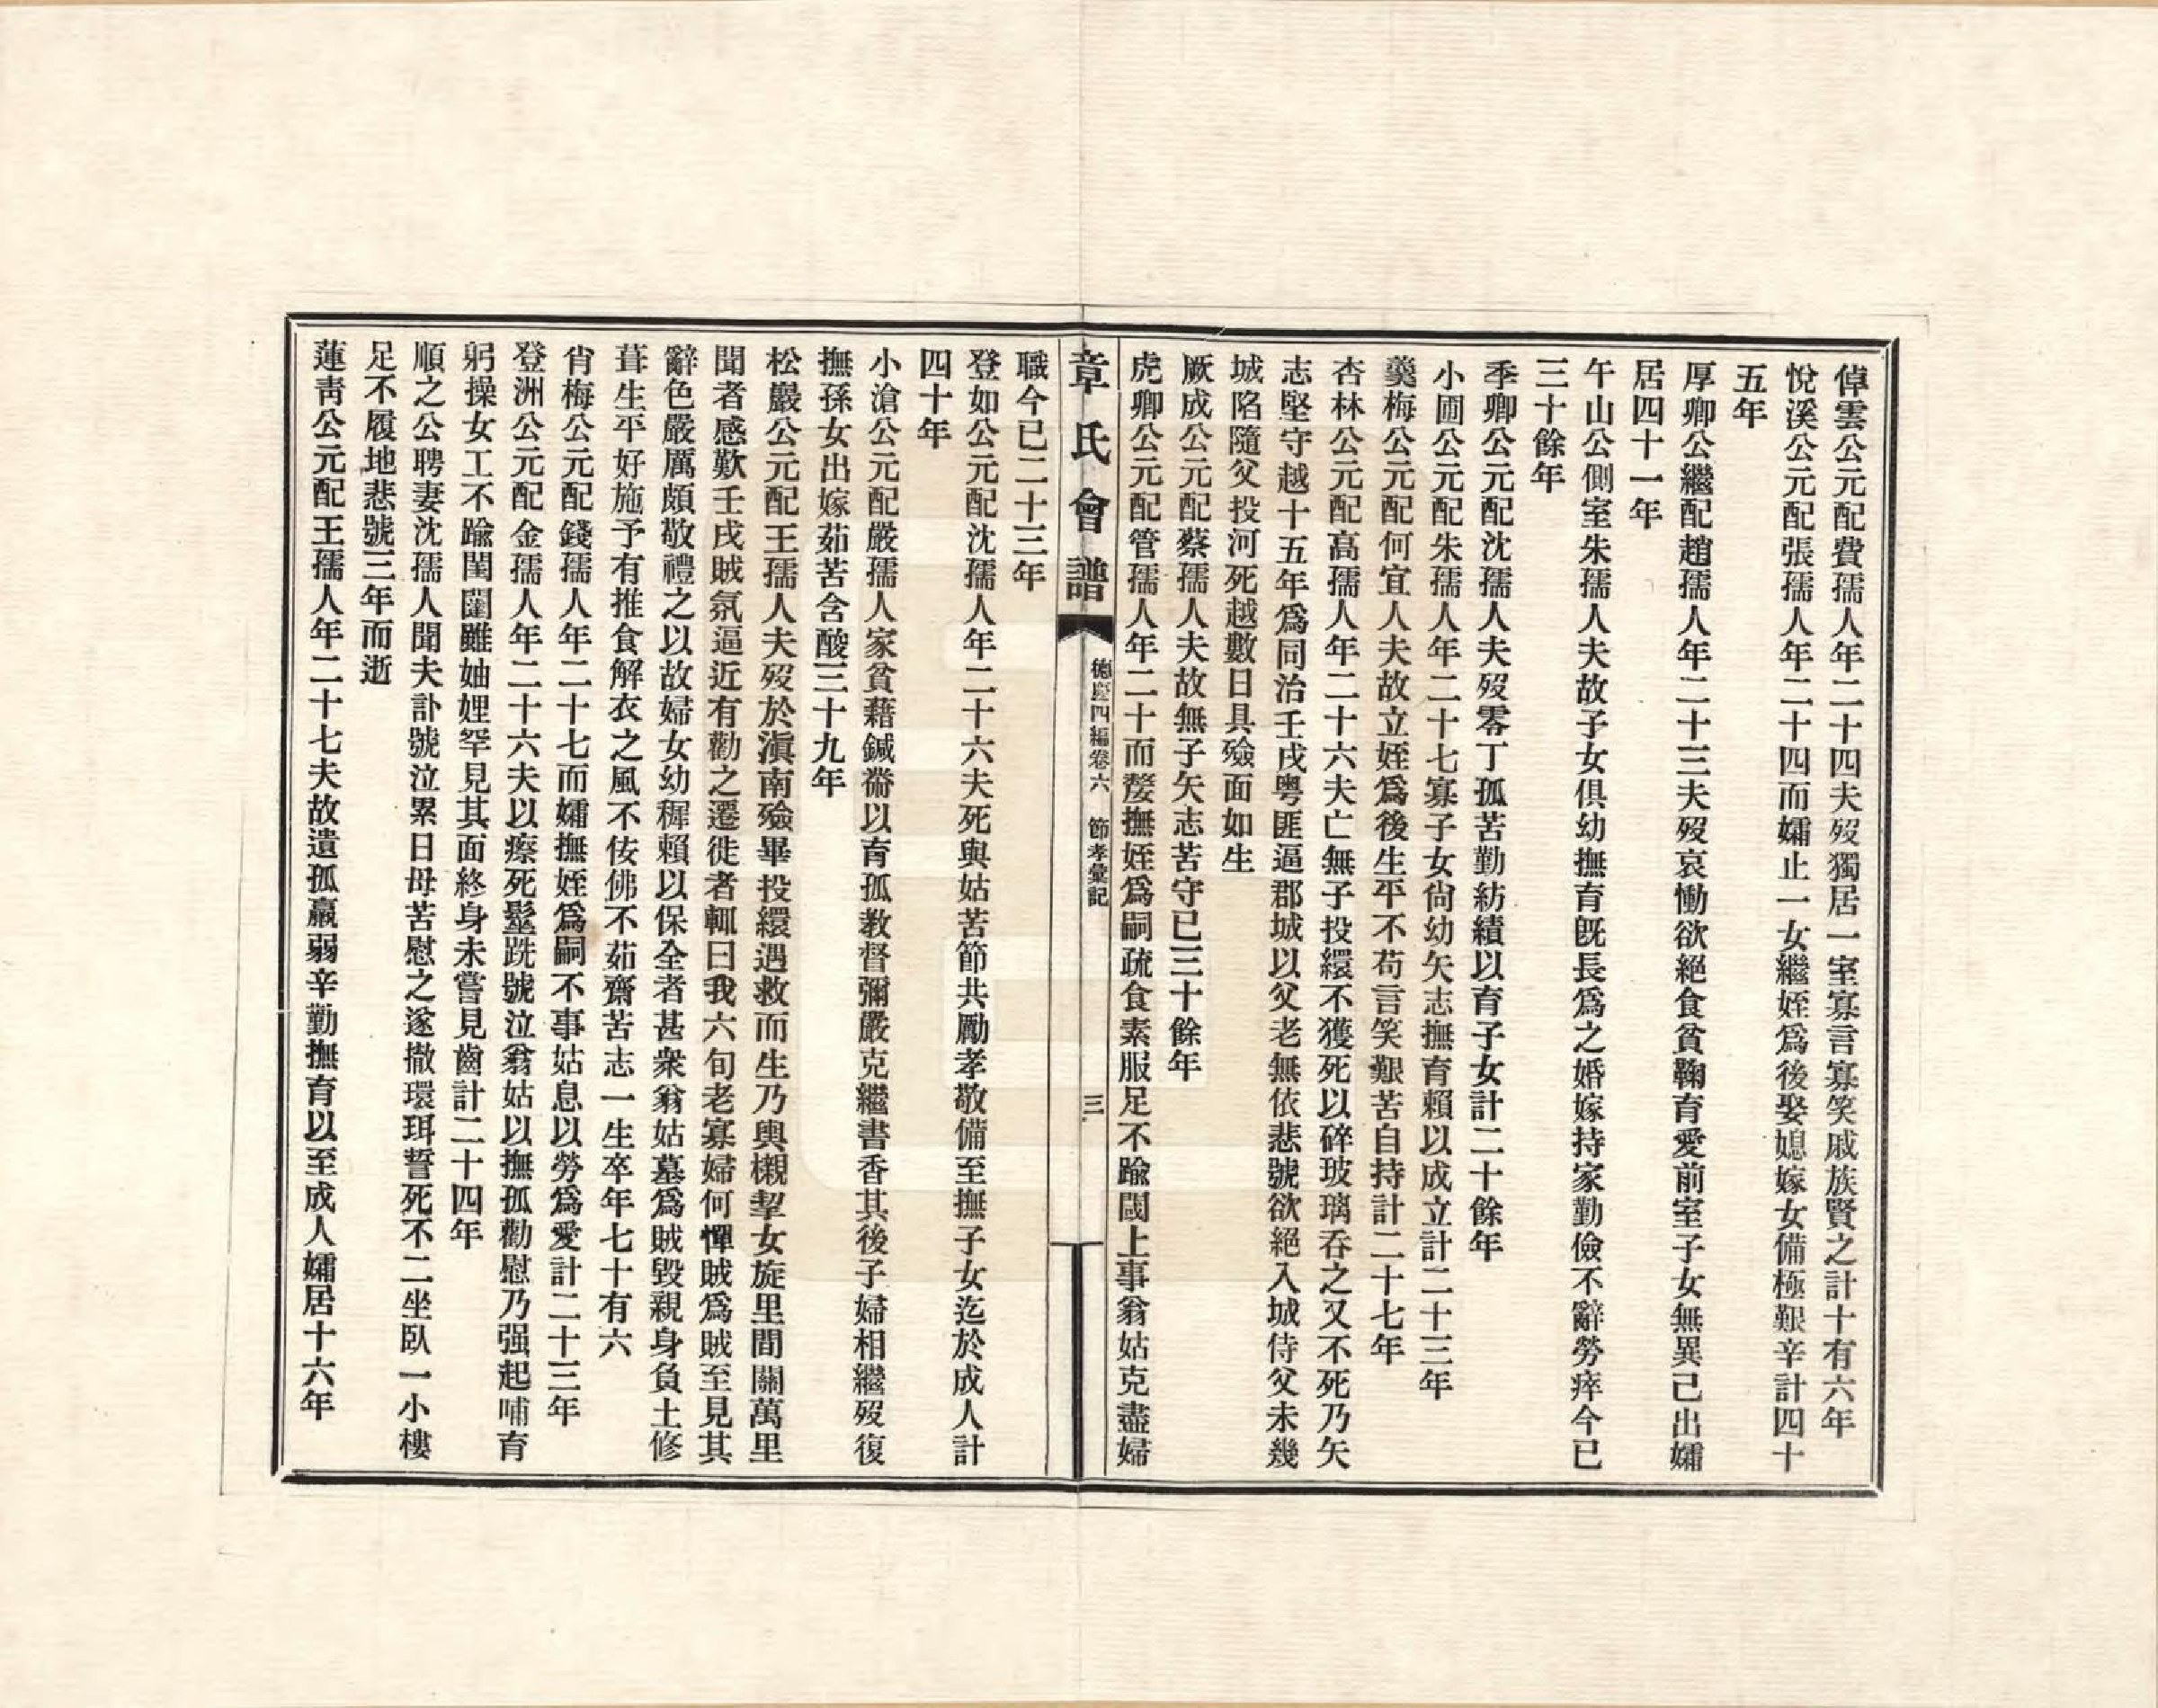 倬雲公元配費孺人年二十四夫歿獨居一室寡言寡笑戚族賢之計十有六年
悅溪公元配張孺人年二十四而孀止一女繼姪爲後娶媳嫁女備極艱辛計四十
五年
厚卿公繼配趙孺人年二十三夫歿哀慟欲絕食貧鞠育愛前室子女無異己出孀
居四十一年
午山公側室朱孺人夫故子女俱幼撫育旣長爲之婚嫁持家勤儉不辭勞瘁今已
三十餘年
季卿公元配沈孺人夫歿零丁孤苦勤紡績以育子女計二十餘年
小圃公元配朱孺人年二十七寡子女尙幼矢志撫育賴以成立計二十三年
羹梅公元配何宜人夫故立姪爲後生平不苟言笑艱苦自持計二十七年
杏林公元配高孺人年二十六夫亡無子投繯不獲死以碎玻璃吞之又不死乃矢
志堅守越十五年爲同治壬戌粤匪逼郡城以父老無依悲號欲絕入城侍父未幾
城陷隨父投河死越數日具殮面如生
厥成公元配蔡孺人夫故無子矢志苦守已三十餘年
虎卿公元配管孺人年二十而嫠撫姪爲嗣疏食素服足不踰閾上事翁姑克盡婦
章氏會譜
德慶四編卷六 節孝彙記
三
職今已二十三年
登如公元配沈孺人年二十六夫死與姑苦節共勵孝敬備至撫子女迄於成人計
四十年
小滄公元配嚴孺人家貧藉鍼黹以育孤教督彌嚴克繼書香其後子婦相繼歿復
撫孫女出嫁茹苦含酸三十九年
松巖公元配王孺人夫歿於滇南殮畢投繯遇救而生乃輿櫬挈女旋里間關萬里
聞者感歎壬戌賊氛逼近有勸之遷徙者輒曰我六旬老寡婦何憚賊爲賊至見其
辭色嚴厲頗敬禮之以故婦女幼穉賴以保全者甚衆翁姑墓爲賊毀親身負土修
葺生平好施予有推食解衣之風不佞佛不茹齋苦志一生卒年七十有六
肖梅公元配錢孺人年二十七而孀撫姪爲嗣不事姑息以勞爲愛計二十三年
登洲公元配金孺人年二十六夫以瘵死髽跣號泣翁姑以撫孤勸慰乃强起哺育
躬操女工不踰閨闥雖妯娌罕見其面終身未嘗見齒計二十四年
順之公聘妻沈孺人聞夫訃號泣累日母苦慰之遂撤環珥誓死不二坐臥一小樓
足不履地悲號三年而逝
蓮靑公元配王孺人年二十七夫故遺孤羸弱辛勤撫育以至成人孀居十六年